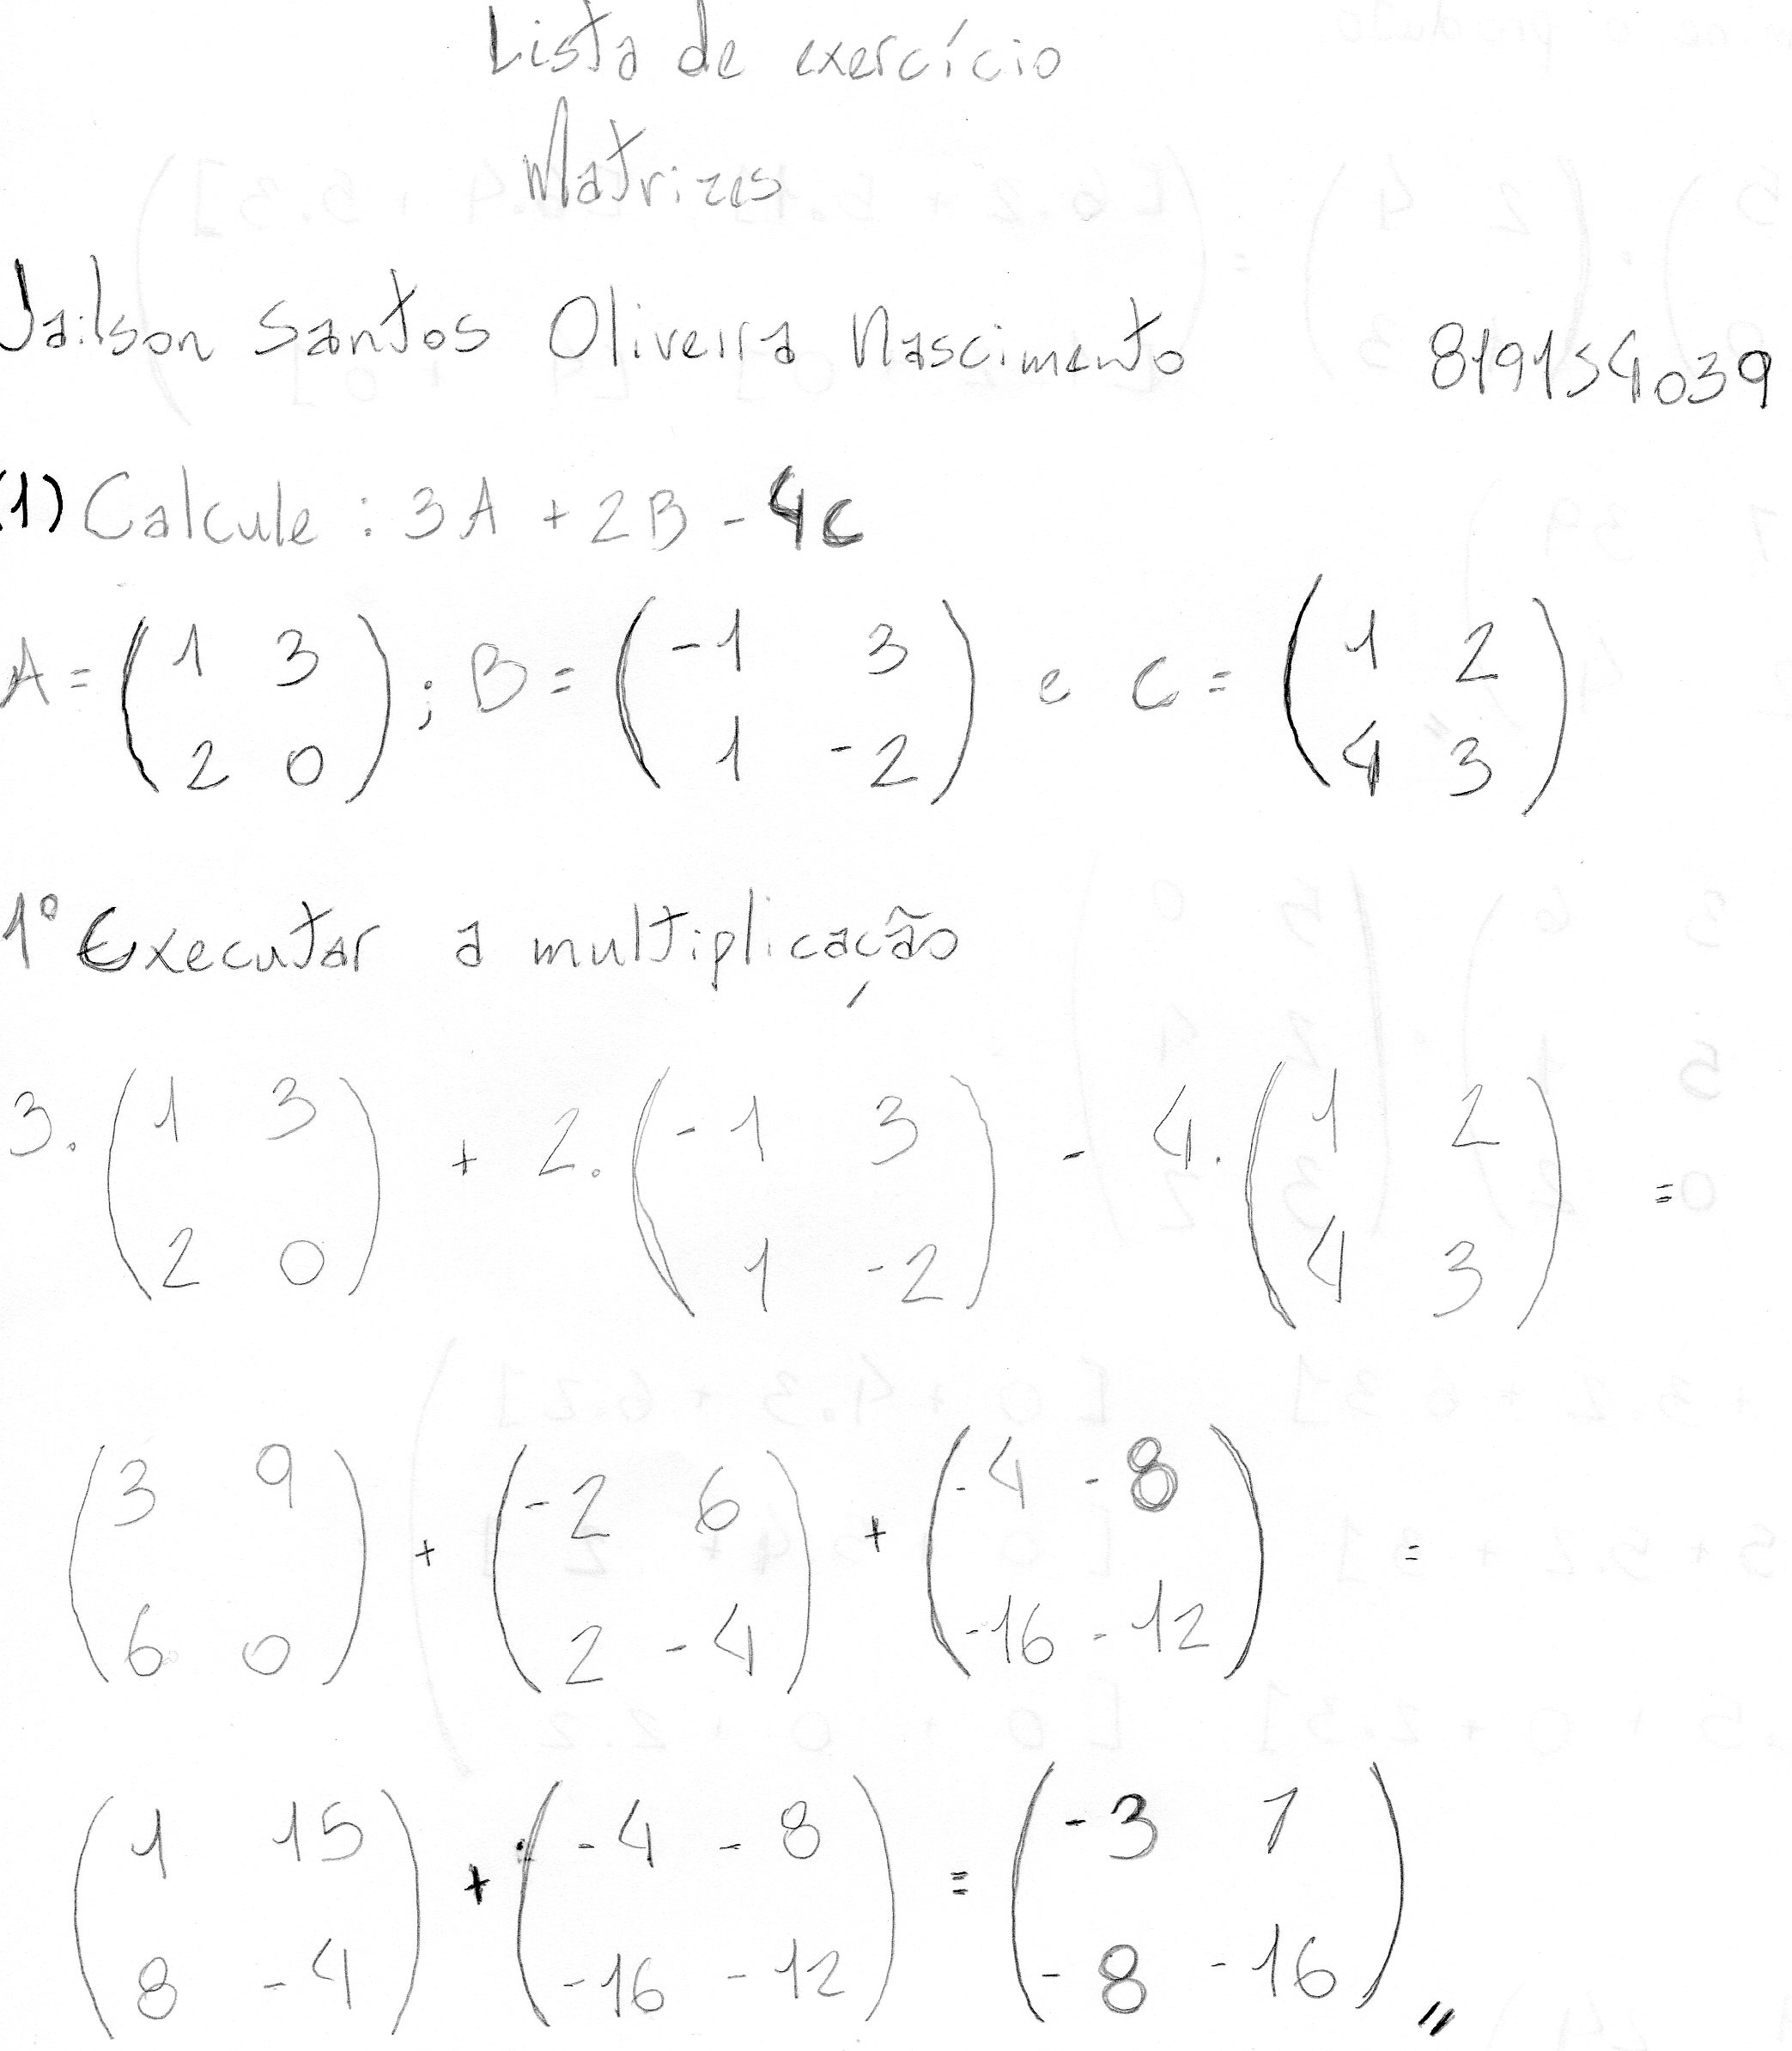 Lista de exercício
Matrizes
Jailson Santos Oliveira Nascimento 819154039
(1) Calcule : 3A + 2B - 4C
A = ( 1 3 ) ; B = ( -1 3 ) e C = ( 1 2 )
2 0 1 -2 4 3
1º Executar a multiplicação
3. ( 1 3 ) + 2. ( -1 3 ) - 4. ( 1 2 ) =
2 0 1 -2 4 3
( 3 9 ) + ( -2 6 ) + ( -4 -8 ) =
6 0 2 -4 -16 -12
( 1 15 ) + ( -4 -8 ) = ( -3 7 )
8 -4 -16 -12 -8 -16 //